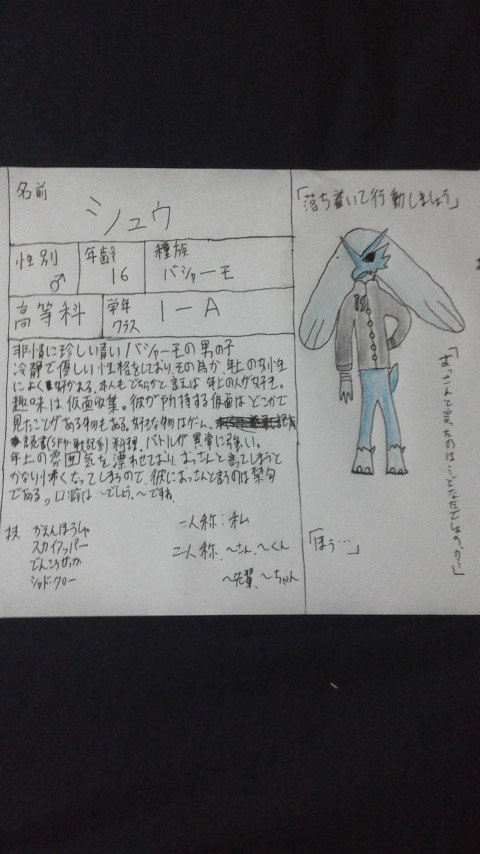 名前
シュウ
性別
♂
年齢
16
種族
バシャーモ
高等科
学年
クラス
1-A
非情に珍しい青いバシャーモの男の子
冷静で優しい性格をしており、その為か、年上の女性
によく好かれる。本人もどちらかと言えば年上の人が好き。
趣味は仮面収集。彼が所持する仮面はどこかで
見たことがある物もある。好きな物はゲーム、
読書(SFや戦記系)料理、バトルが異常に強い。
年上の雰囲気を漂わせており、おっさんと言ってしまうと
かなり怖くなってしまうので、彼におっさんと言うのは禁句
である。口癖は〜でしょう、〜ですね
技
かえんほうしゃ
スカイアッパー
でんこうせっか
シャドークロー
一人称:私
二人称、〜さん、〜くん
〜先輩、〜ちゃん
「落ち着いて行動しましょう」
「おっさんと言ったのは…どなたでしょうか…」
「ほう…」